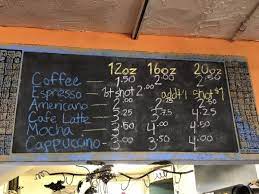 12oz 16oz 20oz
Coffee — 1.50 2.00 2.50
Espresso — 1st shot 2.00 add'l shot $1
Americano — 2.00 2.50
Cafe Latte — 3.25 3.75 4.25
Mocha — 3.50 4.00 4.50
Cappuccino — 3.00 3.50 4.00